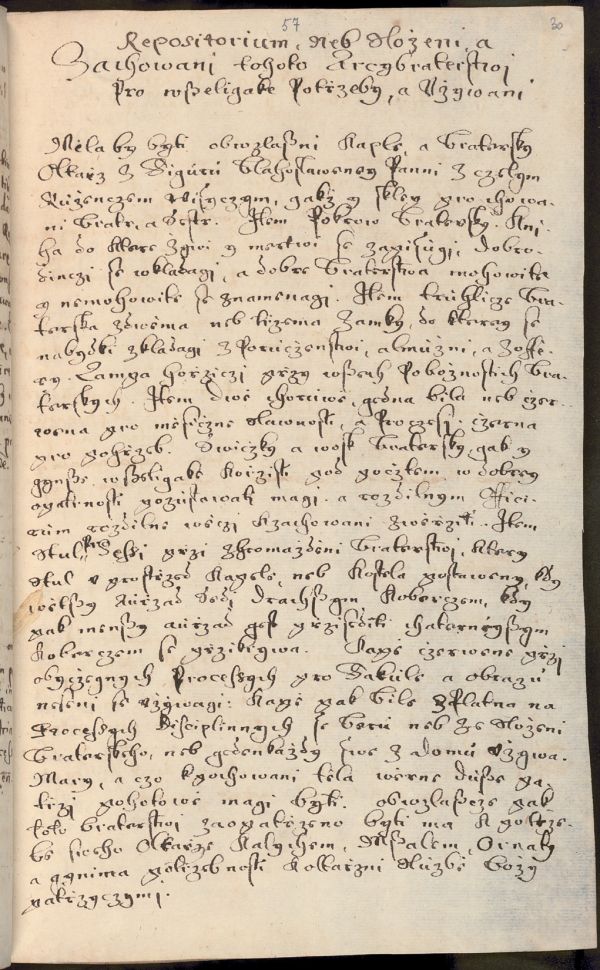 57
30
Repositorium, Neb Slożeni, a
Zachowani tohoto Arcybraterstwj
Pro wsseligake Potrżeby, a Vżywani
Mėla by byti obwzlasstni Kaple, a bratersky
Oltarż z Figurú Blahoslaweney Panni z czelym
Rúżenczem, gakż y skley pro chowa-
ni Bratr, a Sestr. Item Pokrow bratersky. Kni-
ha do ktere żiwi y mertwi se zapisúgi, dobro-
dinczi se wkladagi, a dobre braterstwa mohowite
y nemohowite se znamenagi. Item trúhlicze bra-
terska zdwėma neb trżema zamky, do kterey se
nabytki skladagi z Powinżenstwi, almúżni, a Zoffė-
ry. Lampa horżiczi prży wssech Pobożnostich bra-
terskych. Item dwė choruwe, gedna bila neb czer-
wena pro mėsiczne slawnosti, a Processi, czerna
pro pohrżeb. Swiczky a wosk bratersky, gak y
gynsse wsseligake pod pocztem w dobrey
opatrnosti pozústawati magi, a rozdilnym Offici-
rúm rozdilne wėczi kzachowani zwėrżiti. Item
Stul prżi zhromażdėni braterstwj, ktery
stul v prostrżed Kapele, neb Kostela postaweny, kdy
wėtssy Aurżad sedi, drachssym Koberczem, kdy
pak menssy aurżad gest prżisediti chaternėgssym
Koberczem se prżikrywa. Kapė czerwene prżi
obyczegnych Processych pro Fakule a obrazú
neseni se vżywagi: Kapė pak bile z Platna na
Processych Disciplinnych se berú neb ze Slożeni
braterskeho, neb gedenkażdy swė z domú vżywa.
Mary, a czo kpochowani tėla wėrne dússe pa-
trżi pohotowė magi byti. obwzlasstė pak
toto braterstwj zaopatrżeno byti ma k potrże-
bė sweho Oltarże Kalychem, Mssalem, Ornaty
a gynima potrżebnosti k oltarżni službė Boży
patrżyczymi.